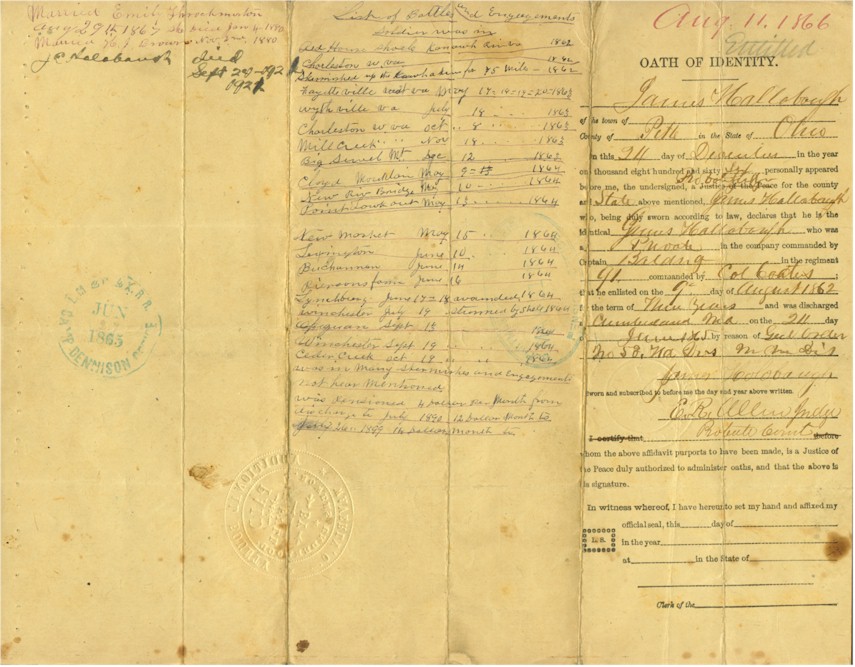 Married Emily Throckmorton
Aug 29th 1867 She Died Jan 6 1880
Married H. J. Brown Nov 2nd 1880
J C Holabaugh Died
Sept 20-092
092
JUN
1865
DENNISON
List of Battles and Engagements
Soldier was in
Red House Shoals Kanawh River 1862
Charleston w. va 1862
Skirmished up the Kanwha river for 75 Miles - 1862
Fayetteville west va May 17=18=19=20=1863
Wythville va July 18 1863
Charleston w va oct 8 1863
Mill Creek Nov 18 1863
Big Sewell Mt. Dec 12 1863
Cloyd Mountain May 9 = 1864
New Riv Bridge May 10 1864
Point Lookout May 13 1864
New Market May 15 1864
Lexington June 10 1864
Buchannan June 14 1864
June 16 1864
Lynchburg June 17=18 wounded 1864
Winchester July 19 by shell 1864
Opequan Sept 13
Winchester Sept 19 1864
Cedar Creek oct 19
was in Many Skermishes and Engagements
not hear Mentioned
was Pensioned 4 Dollars Per Month from
discharge to July 1890 12 Dollars Month to
1897 14 Dollars month to
Aug. 11. 1866
Entitled
OATH OF IDENTITY.
James Hallobaugh
of the town of
County of Pike in the State of Ohio
on this 24 day of December in the year
one thousand eight hundred and sixty six personally appeared
before me, the undersigned, a Justice of the Peace for the county
and State above mentioned, James Hallobaugh
who, being duly sworn according to law, declares that he is the
identical James Hallobaugh who was
a Private in the company commanded by
Captain in the regiment
91 commanded by Col Coates;
that he enlisted on the 9th day of August 1862
for the term of Three Years and was discharged
at Cumberland Md on the 24 day
of June 1865 by reason of Genl Order
No
James Holobaugh
Sworn and subscribed to before me the day and year above written
E. R. Allen Judge
Probate Court
I certify that before
whom the above affidavit purports to have been made, is a Justice of
the Peace duly authorized to administer oaths, and that the above is
his signature.
In witness whereof, I have hereunto set my hand and affixed my
official seal, this day of
L.S. in the year
at in the State of
Clerk of the